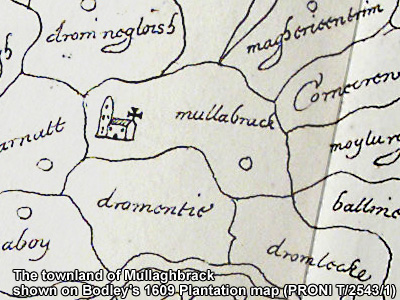 dromnegloish
magherientrim
mullabruck
moylurg
dromentie
ballme
aboy
dromlocke
The townland of Mullaghbrack
shown on Bodley's 1609 Plantation map (PRONI T/2543/1)